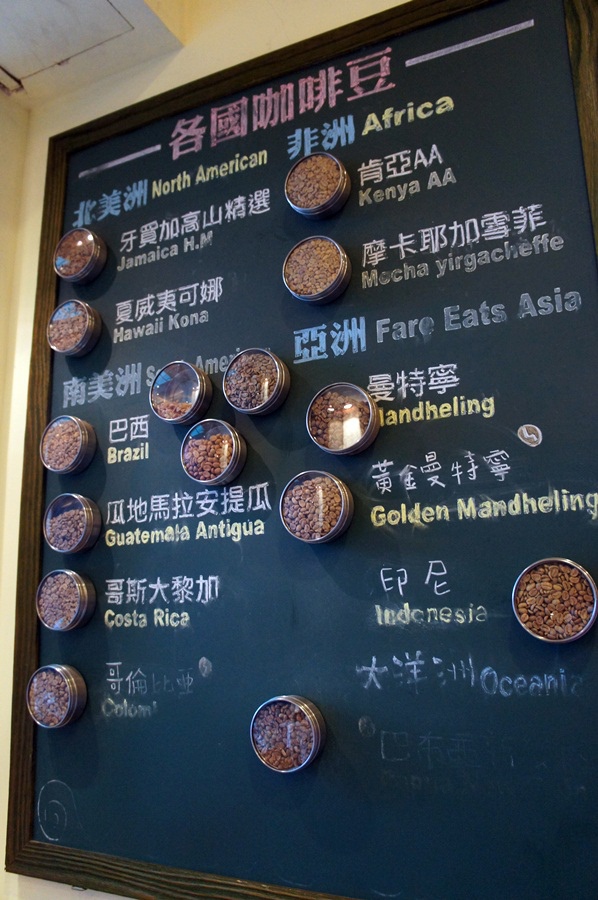 各國咖啡豆
北美洲 North American
牙買加高山精選
Jamaica H.M
夏威夷可娜
Hawaii Kona
南美洲
巴西
Brazil
瓜地馬拉安提瓜
Guatemala Antigua
哥斯大黎加
Costa Rica
哥倫比亞
非洲 Africa
肯亞AA
Kenya AA
摩卡耶加雪菲
Mocha yirgacheffe
亞洲 Fare Eats Asia
曼特寧
Mandheling
黃金曼特寧
Golden Mandheling
印尼
Indonesia
大洋洲 Oceania